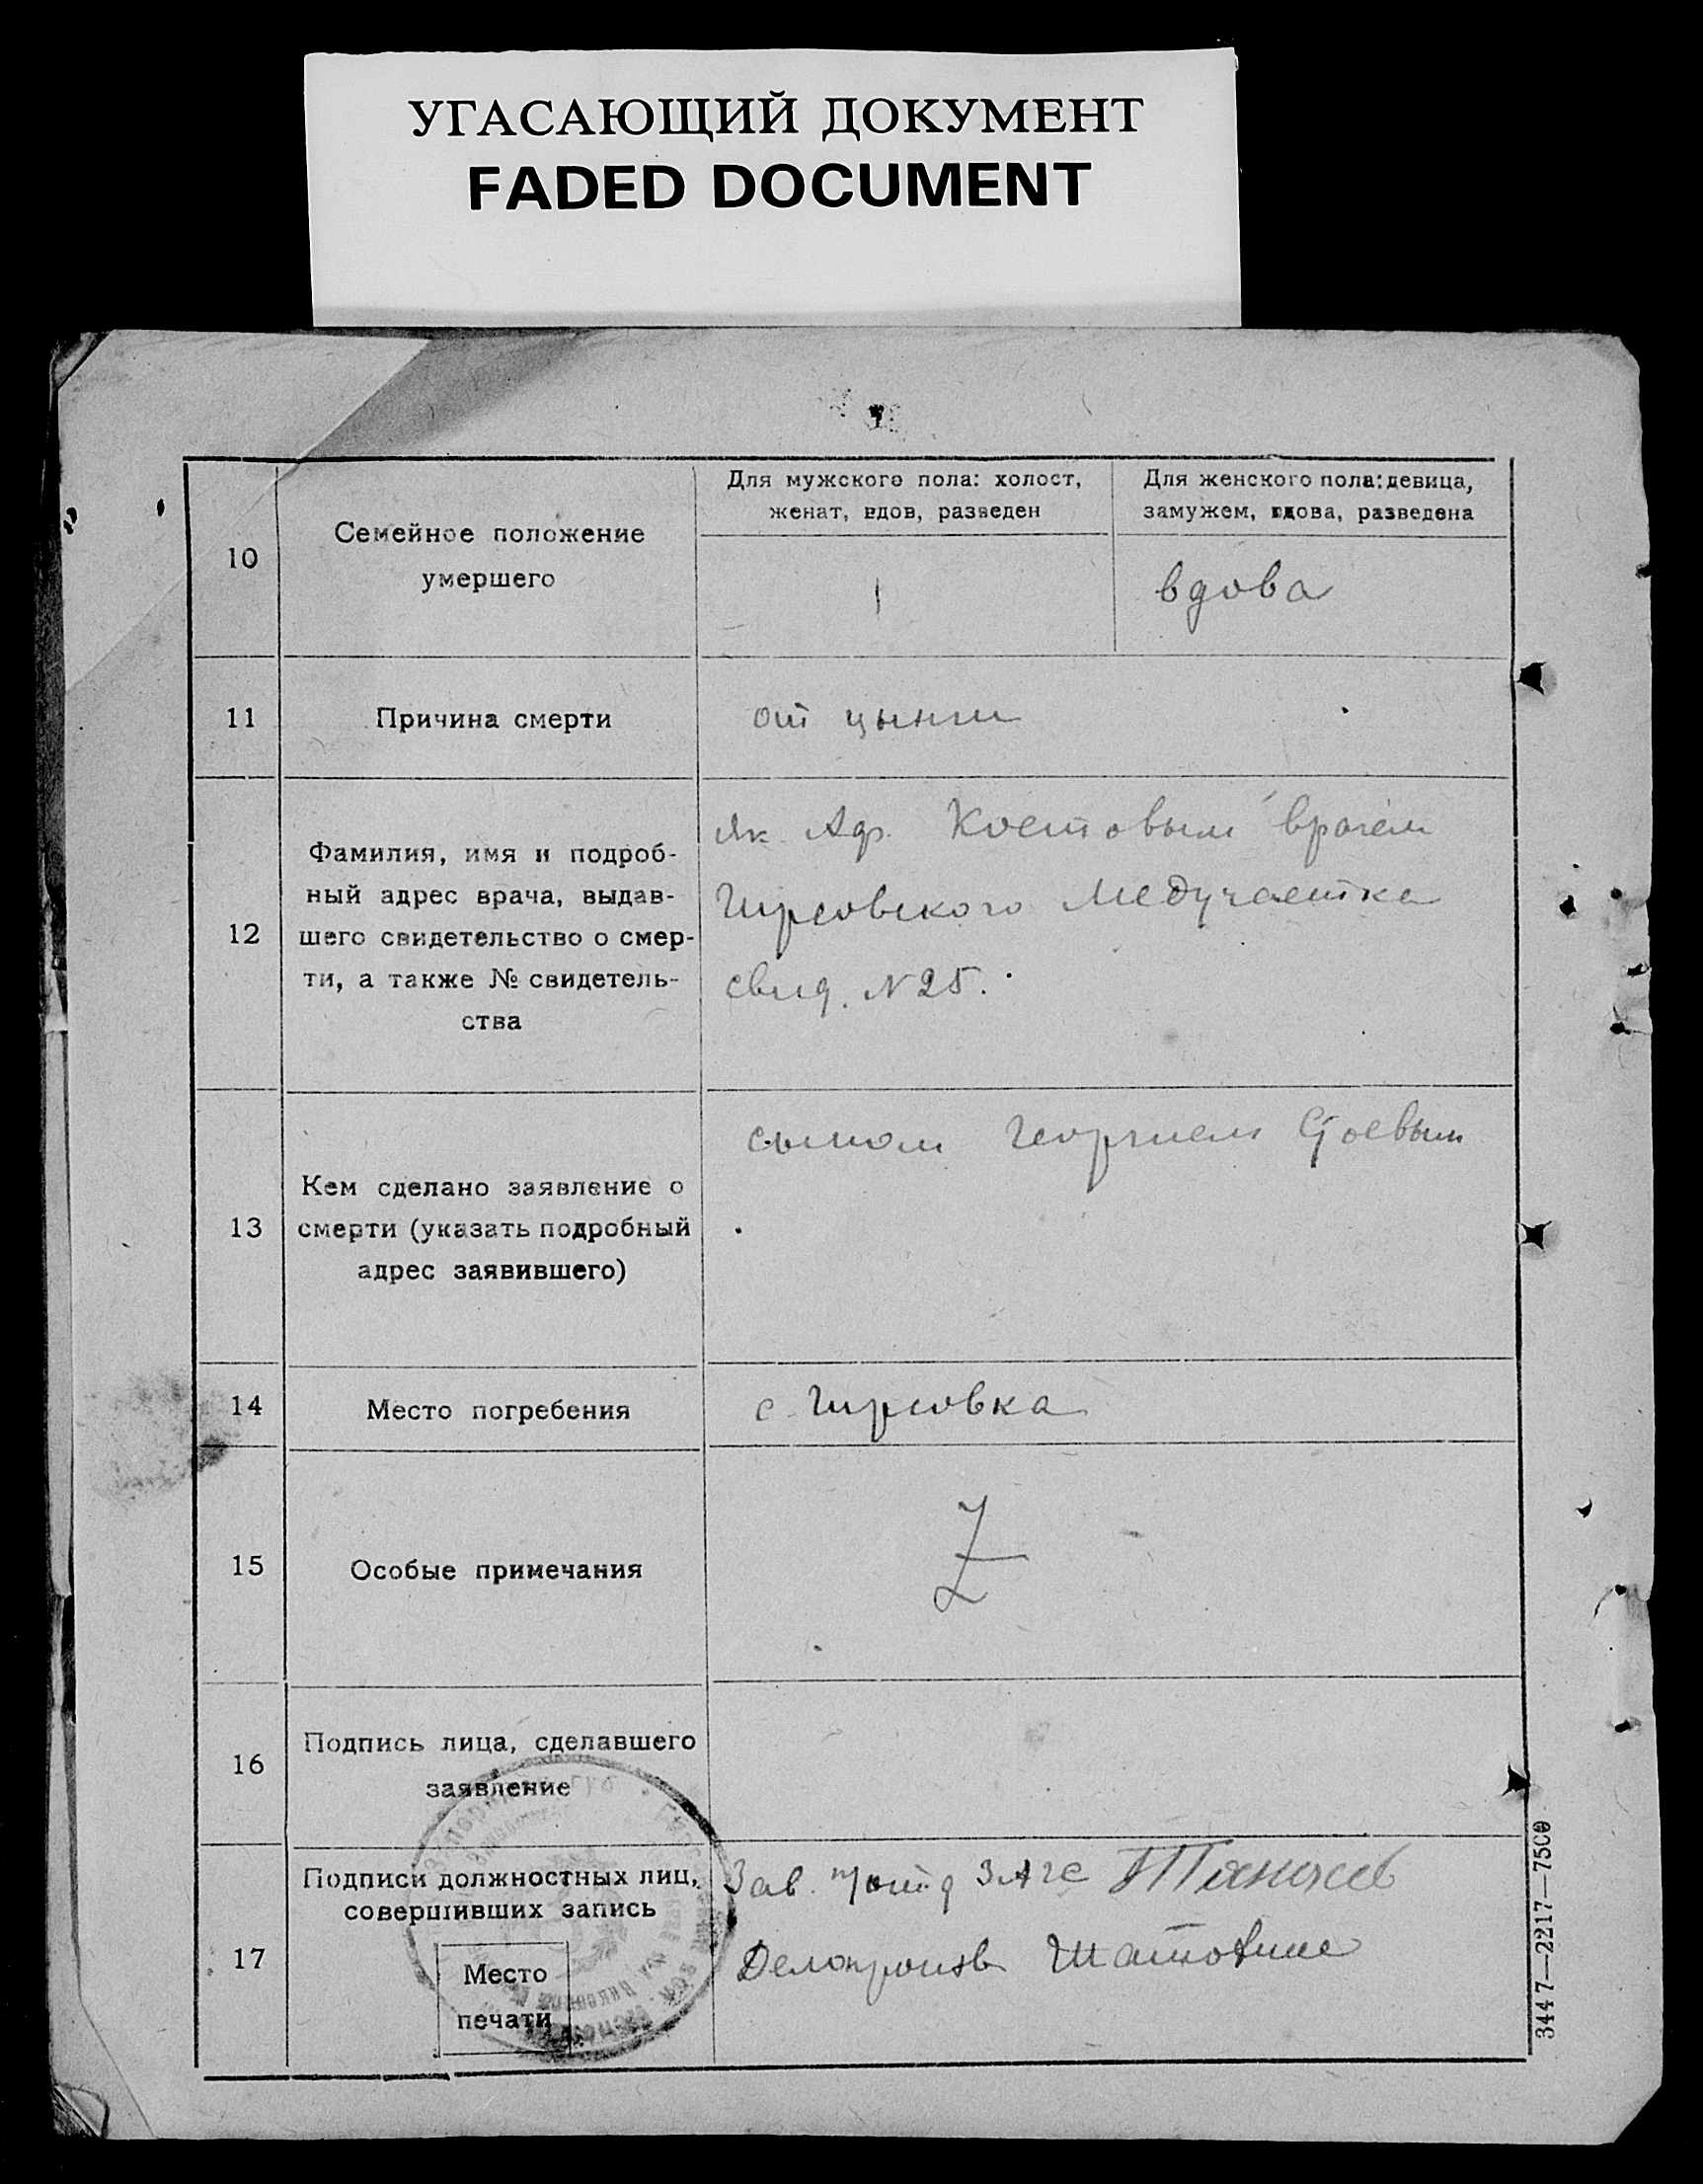 УГАСАЮЩИЙ ДОКУМЕНТ
FADED DOCUMENT
10
Семейное положение
умершего
Для мужского пола: холост,
женат, вдов, разведен
Для женского пола: девица,
замужем, вдова, разведена
вдова
11
Причина смерти
от цынги
12
Фамилия, имя и подроб-
ный адрес врача, выдав-
шего свидетельство о смер-
ти, а также № свидетель-
ства
Як. Аф. Костовым врачем
Гирсовского Медучастка
свид. N 25.
13
Кем сделано заявление о
смерти (указать подробный
адрес заявившего)
сыном Георгием
14
Место погребения
с. Гирсовка
15
Особые примечания
Z
16
Подпись лица, сделавшего
заявление
17
Подписи должностных лиц,
совершивших запись
Место
печати
Зав. ЗАГС
Делопроизв
3447—2217—7500